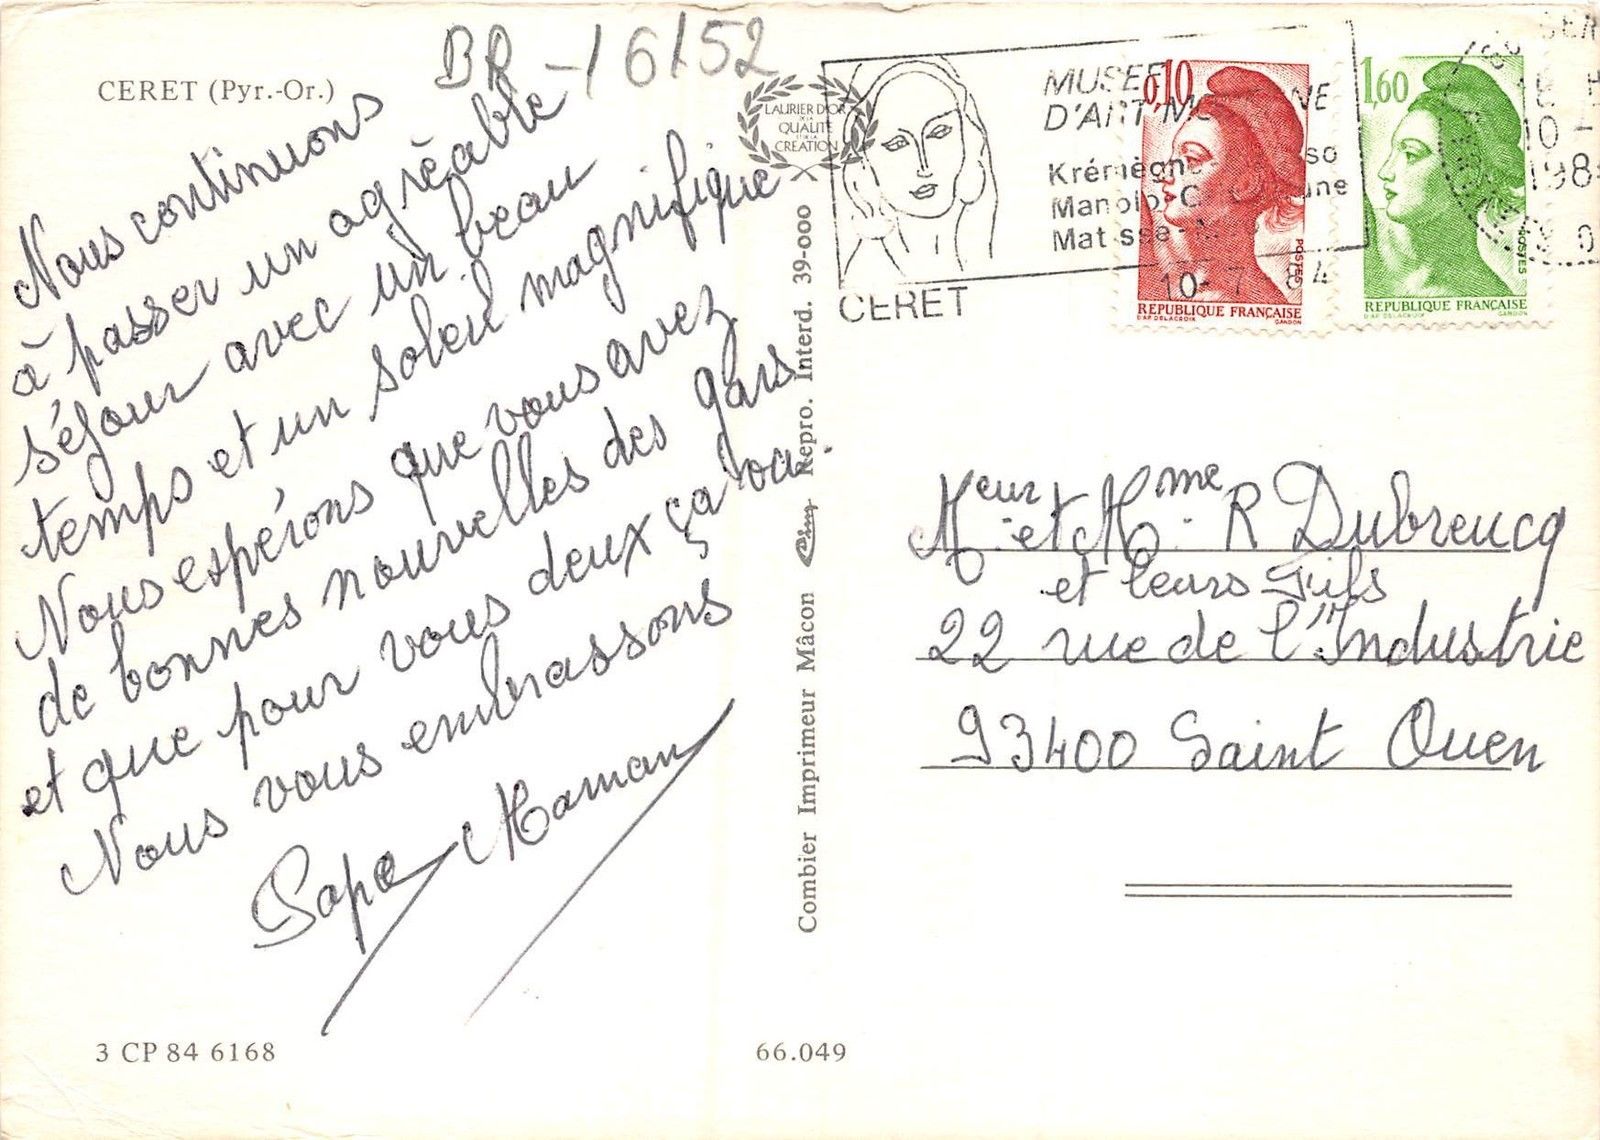 CERET (Pyr.-Or.)
BR-16152
LAURIER D'OR
DE LA
QUALITÉ
ET DE LA
CRÉATION
Nous continuons
à passer un agréable
séjour avec un beau
temps et un soleil magnifique
Nous espérons que vous avez
de bonnes nouvelles des gars
et que pour vous deux ça va.
Nous vous embrassons
Papa Maman
3 CP 84 6168
66.049
Combier Imprimeur Mâcon Repro. Interd. 39-000
MUSEE
D'ART
CERET
10-7 84
0,10
POSTES
REPUBLIQUE FRANÇAISE
D'AP. DELACROIX GANDON
1,60
POSTES
REPUBLIQUE FRANÇAISE
D'AP. DELACROIX GANDON
10 -
Meur et Mme R Dubreucq
et leurs Fils
22 rue de l'Industrie
93400 Saint Ouen